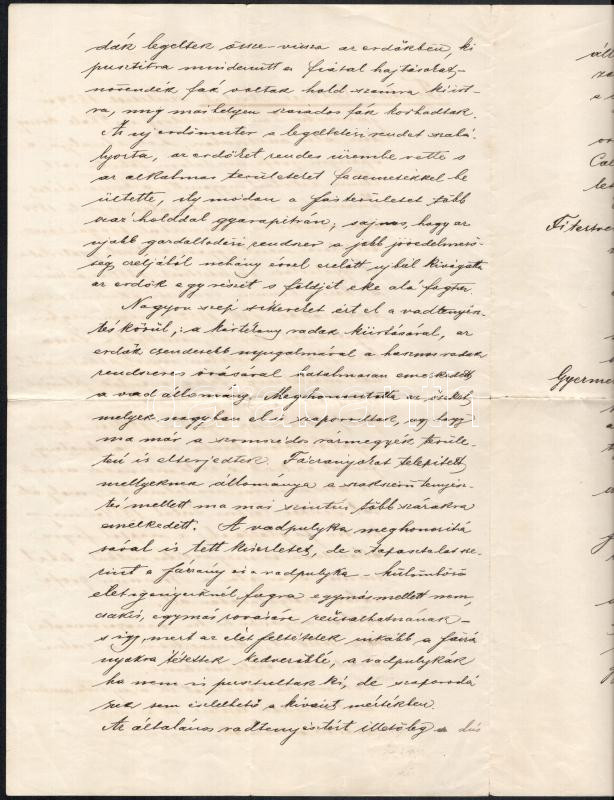 dák legeltek össze-vissza az erdőkben, ki
pusztitva mindenütt a fiatal hajtásokat,
növendék fák voltak hold számra kiirt-
va, mig máshelyen százados fák korhadtak.
Az uj erdőmester a legeltetési rendet szabá-
lyozta, az erdőket rendes üzembe vette s
az alkalmas területeket facsemetékkel be
ültette, ily módon a faterületet több
száz holddal gyarapitván; sajnos, hogy az
ujabb gazdálkodási rendszer a jobb jövedelmező-
ség céljából néhány évvel ezelőtt ujból kivágatta
az erdők egy részét s földjét eke alá fogta.
Nagyon szép sikereket ért el a vadtenyész-
tés körül, a kártékony vadak kiirtásával, az
erdők csendesebb nyugalmával a hasznos vadak
rendszeres óvásával hatalmasan emelkedett
a vadállomány. Meghonositotta az őzeket
melyek nagyban el is szaporodtak, ugy hogy
ma már a szomszédos vármegyék terüle-
tén is elterjedtek. Fácányokat telepitett
mellyeknek állománya a szakszerű tenyész-
tés mellett ma már szintén több százakra
emelkedett. A vadpulyka meghonositá
sával is tett kisérletet, de a tapasztalat sze-
rint a fácány és a vadpulyka - különböző
életigényeiknél fogva egymás mellett nem,
csakis, egymás rovására prosperálhatnának
s igy, mert az élet feltételek inkább a fácá
nyokra tétettek kedvezőbbé, a vadpulykák
ha nem is pusztultak ki, de szaporodá
suk sem észlelhető a kivánt mértékben.
Az általános vadtenyésztést illetőleg a dús
Gyerme